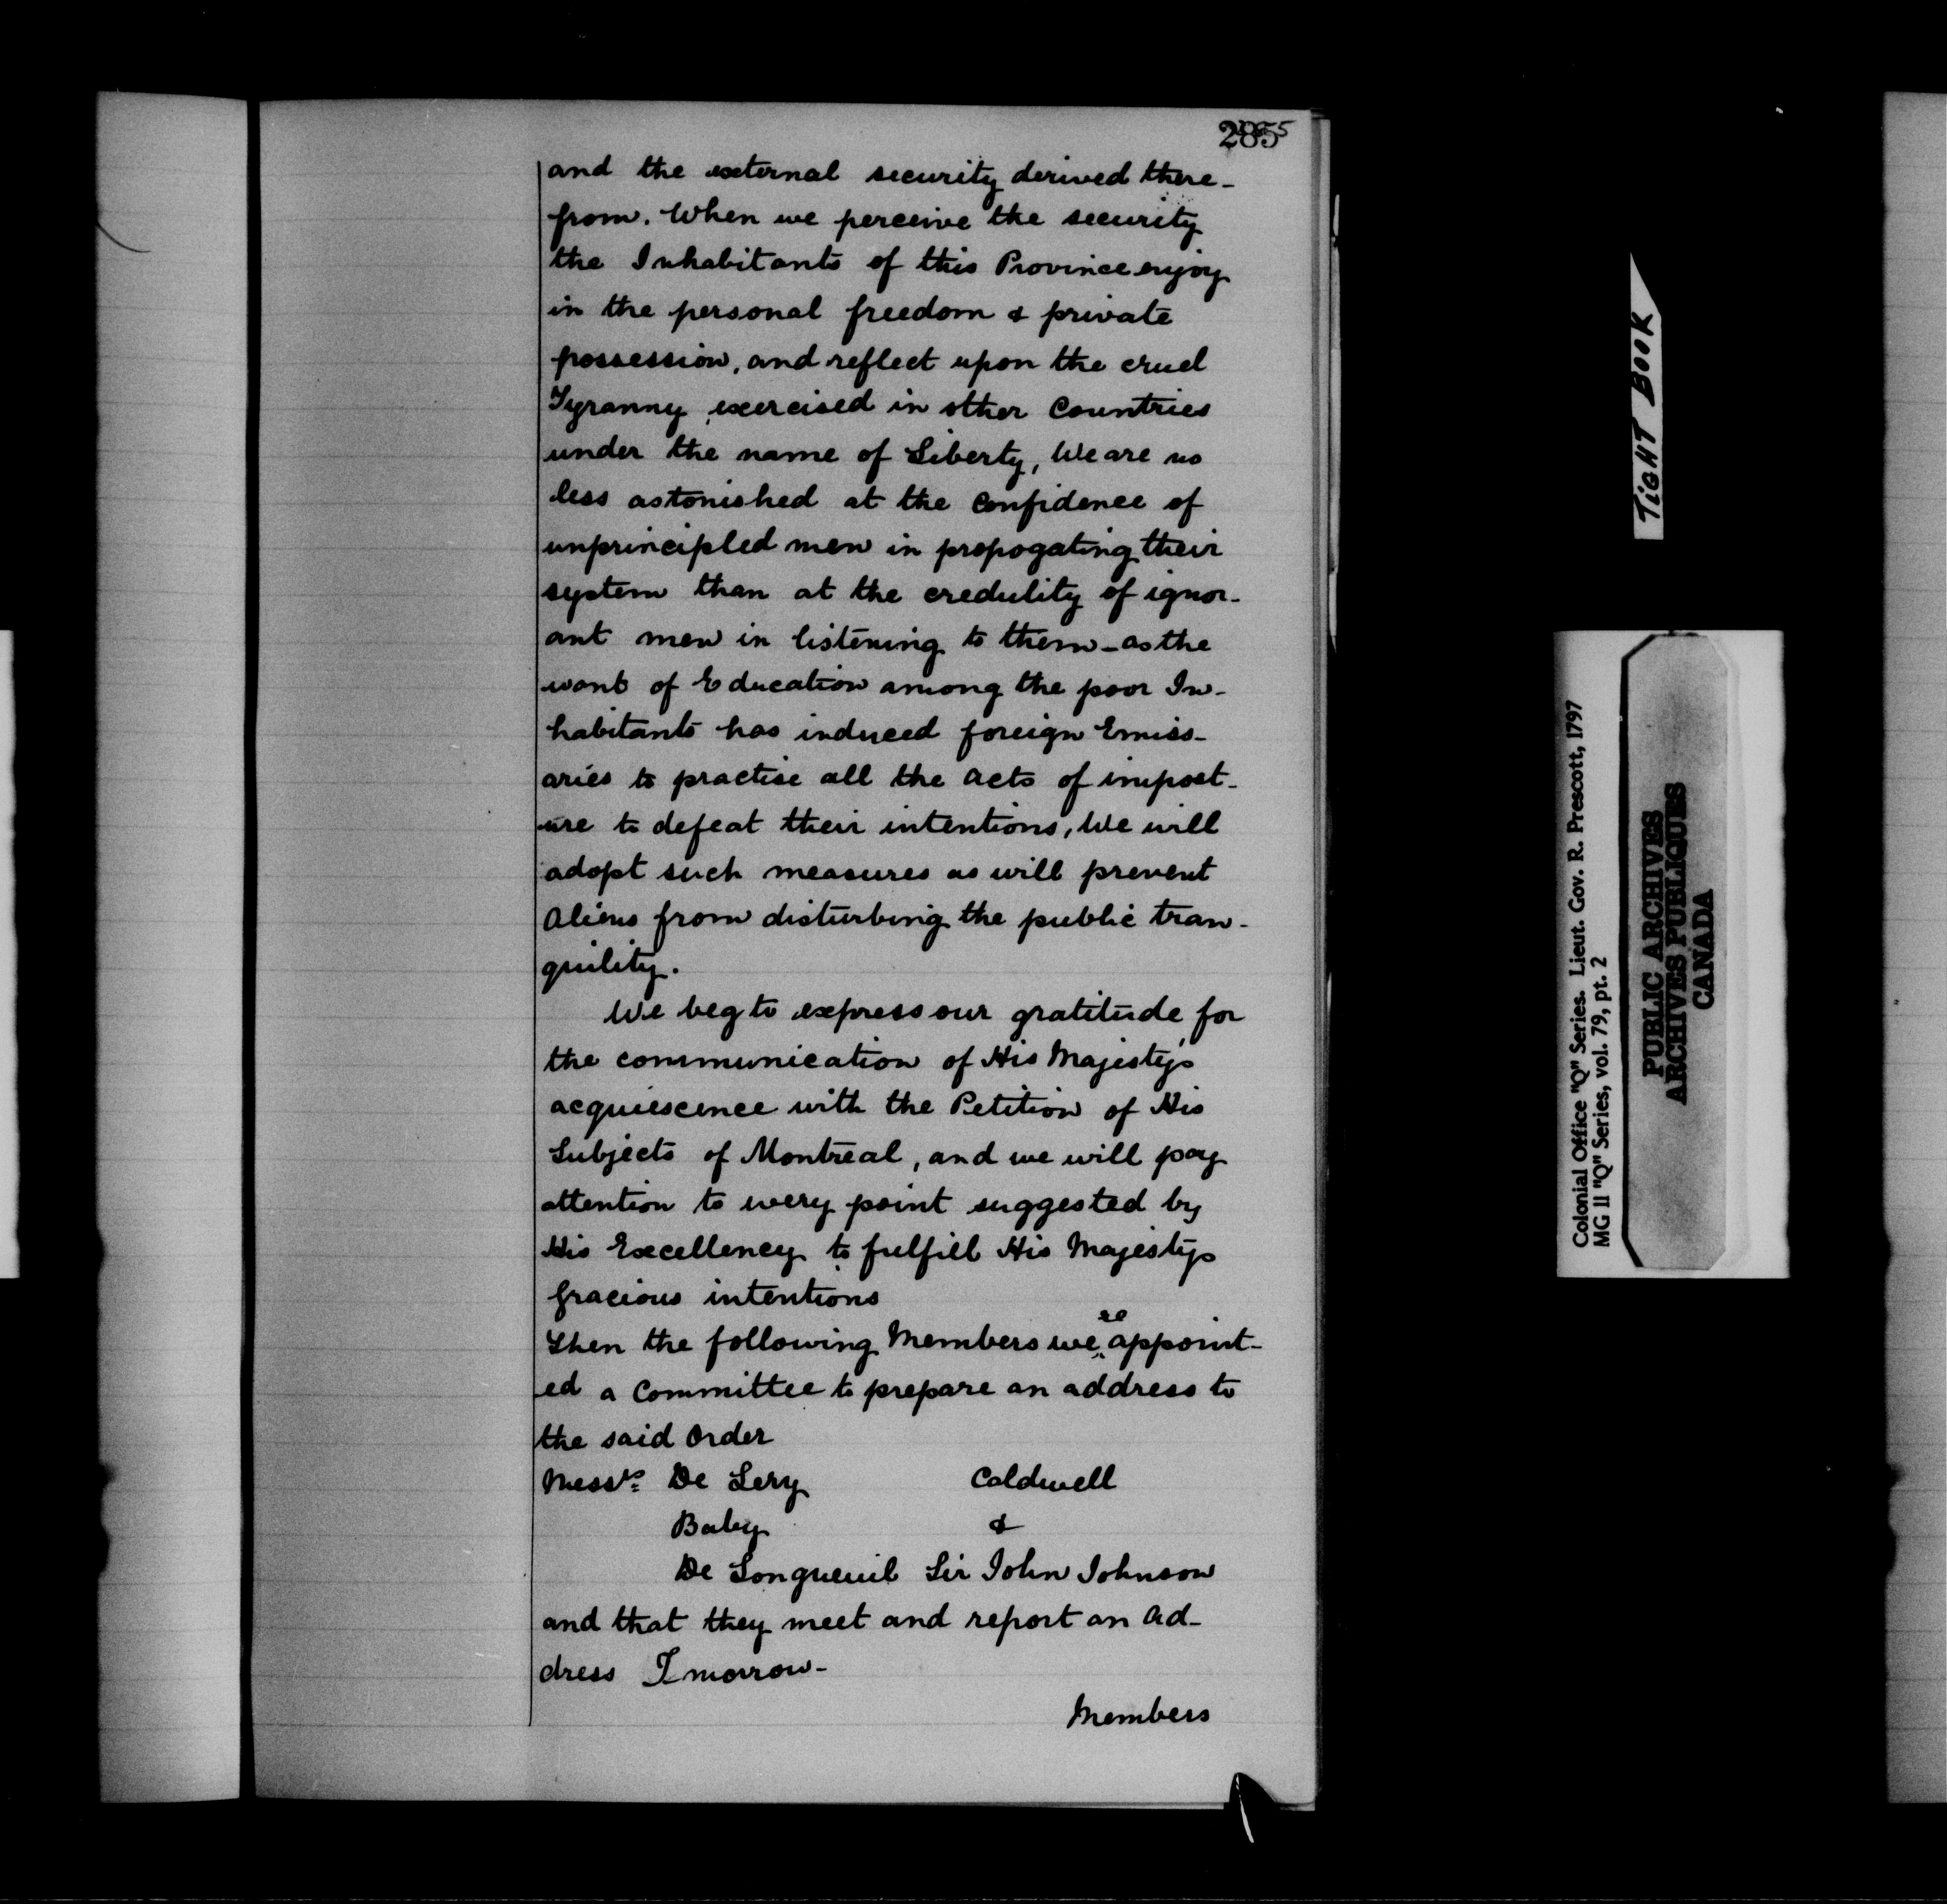 285
and the external security derived there-
from. When we perceive the security
the Inhabitants of this Province enjoy
in the personal freedom & private
possession, and reflect upon the cruel
Tyranny exercised in other Countries
under the name of Liberty, We are no
less astonished at the Confidence of
unprincipled men in propogating their
system than at the credulity of ignor-
ant men in listening to them - as the
want of Education among the poor In-
habitants has induced foreign Emiss-
aries to practise all the acts of impost-
ure to defeat their intentions, We will
adopt such measures as will prevent
Aliens from disturbing the public tran-
quility.
We beg to express our gratitude for
the communication of His Majesty's
acquiescence with the Petition of His
Subjects of Montreal, and we will pay
attention to every point suggested by
His Excellency to fulfill His Majestys
Gracious intentions
Then the following Members were appoint-
ed a Committee to prepare an address to
the said Order
Messrs: De Lery Caldwell
Baby &
De Longueuil Sir John Johnson
and that they meet and report an Ad-
dress Tmorrow-
Members
TIGHT BOOK
Colonial Office "Q" Series. Lieut. Gov. R. Prescott, 1797
MG 11 "Q" Series, vol. 79, pt. 2
PUBLIC ARCHIVES
ARCHIVES PUBLIQUES
CANADA